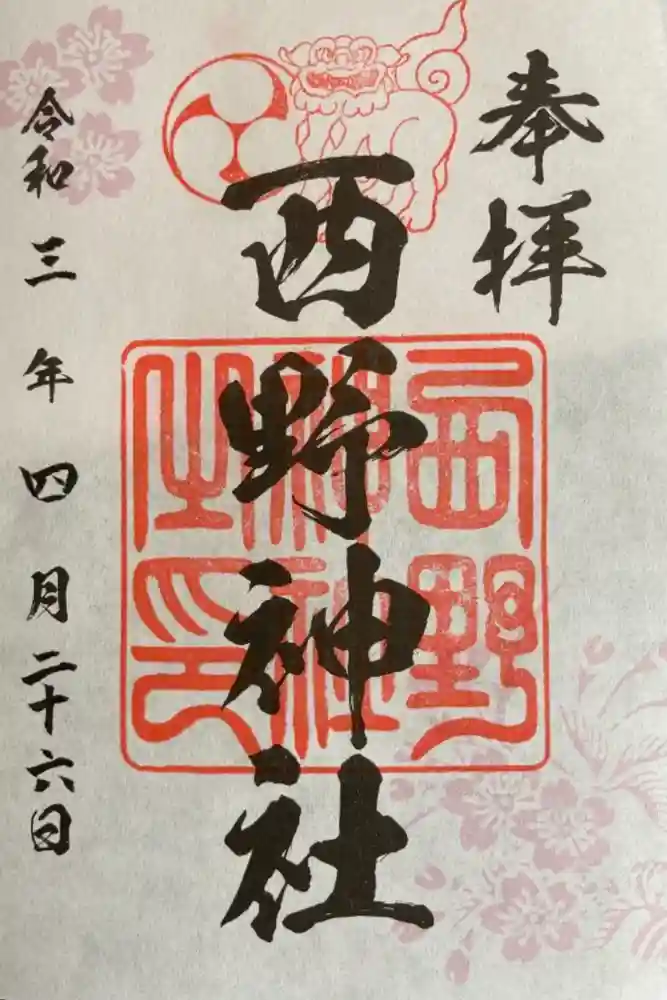 奉拝
西野神社
西野
神社
之印
令和三年四月二十六日